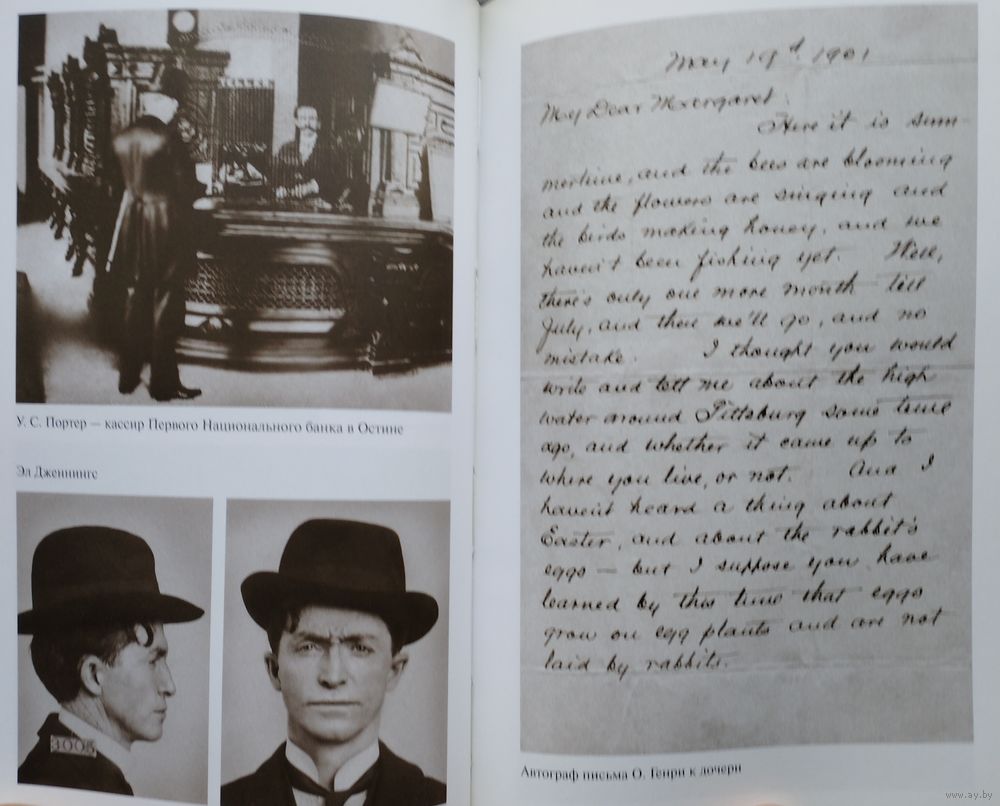 У. С. Портер — кассир Первого Национального банка в Остине
Эл Дженнингс
3005
May 19ᵈ, 1901
My Dear Margaret,
Here it is sum-
mertime, and the bees are blooming
and the flowers are singing and
the birds making honey, and we
haven't been fishing yet. Well,
there's only one more month till
July, and then we'll go, and no
mistake. I thought you would
write and tell me about the high
water around Pittsburg some time
ago, and whether it came up to
where you live, or not. And I
haven't heard a thing about
Easter, and about the rabbit's
eggs — but I suppose you have
learned by this time that eggs
grow on egg plants and are not
laid by rabbits.
Автограф письма О. Генри к дочери
www.ay.by